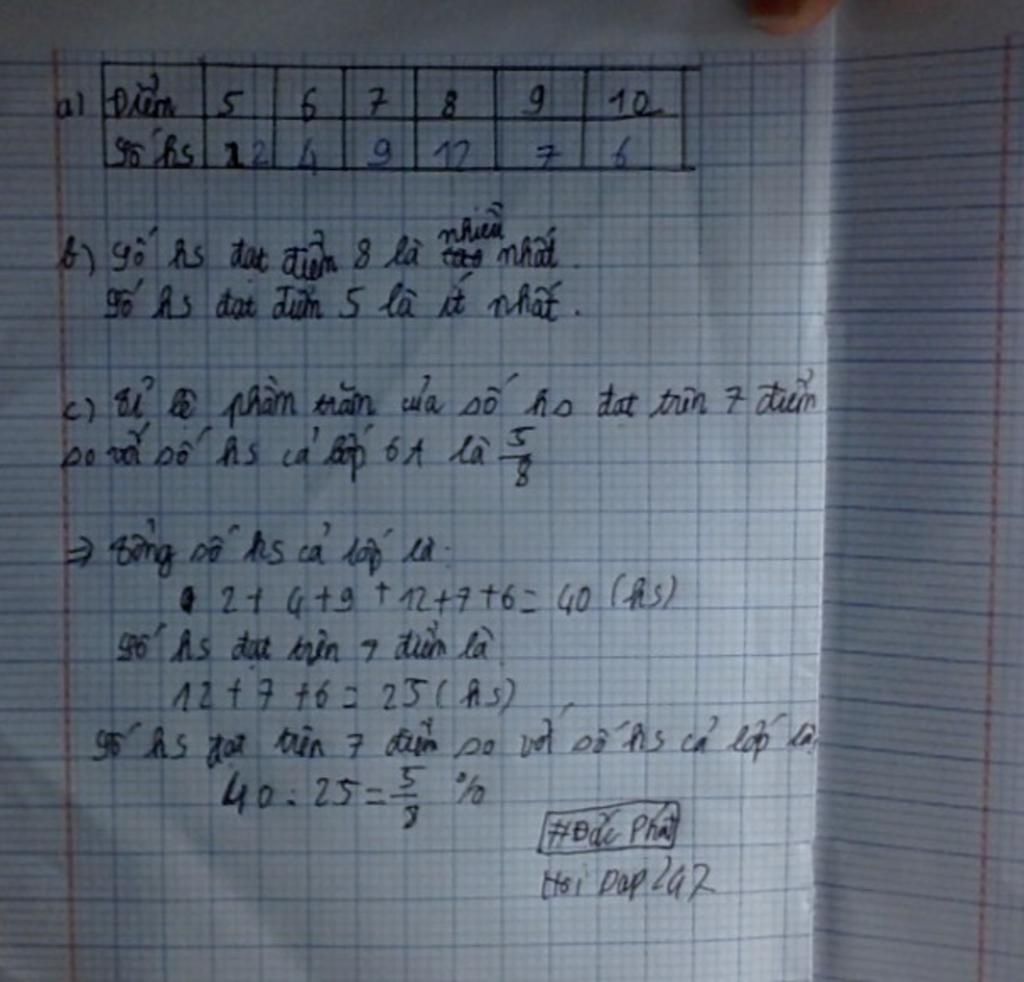 a) Điểm 5 6 7 8 9 10
Số hs 2 4 9 12 7 6
b) Số hs đạt điểm 8 là nhiều nhất.
Số hs đạt điểm 5 là ít nhất.
c) Tỉ lệ phần trăm của số hs đạt trên 7 điểm
so với số hs cả lớp 6A là 5/8
⇒ Tổng số hs cả lớp là:
2 + 4 + 9 + 12 + 7 + 6 = 40 (hs)
Số hs đạt trên 7 điểm là
12 + 7 + 6 = 25 (hs)
Số hs đạt trên 7 điểm so với số hs cả lớp là
40 : 25 = 5/8 %
#Đức Phát
Hoi Dap 247